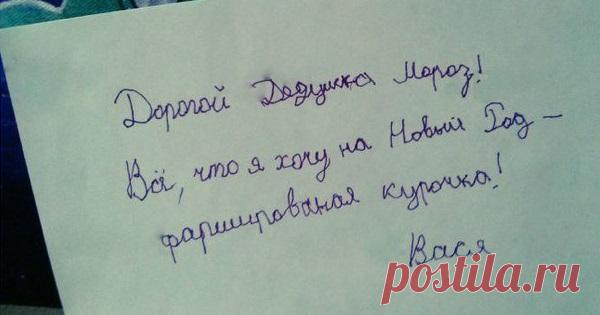 Дорогой Дедушка Мороз!
Всё, что я хочу на Новый Год –
фаршированая курочка!
Вася
postila.ru